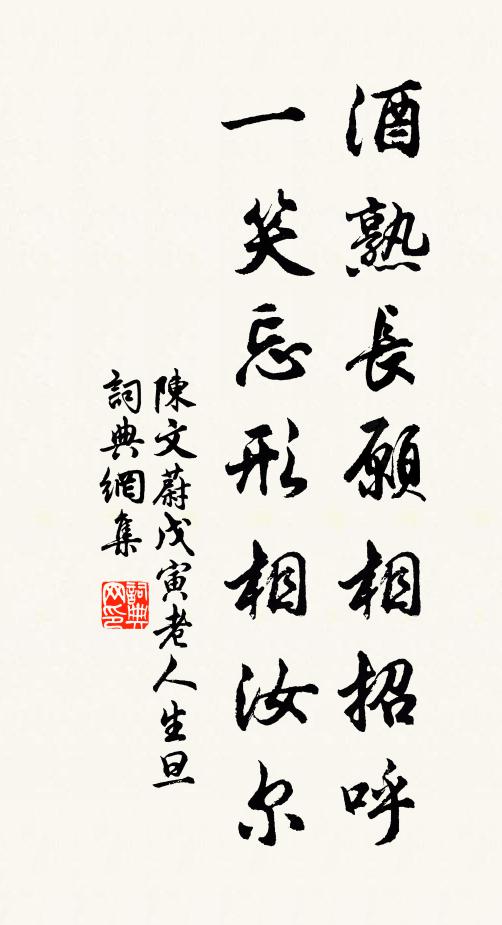 酒熟長願相招呼
一笑忘形相汝尔
陳文蔚戊寅老人生旦
詞典網集
詞典网印